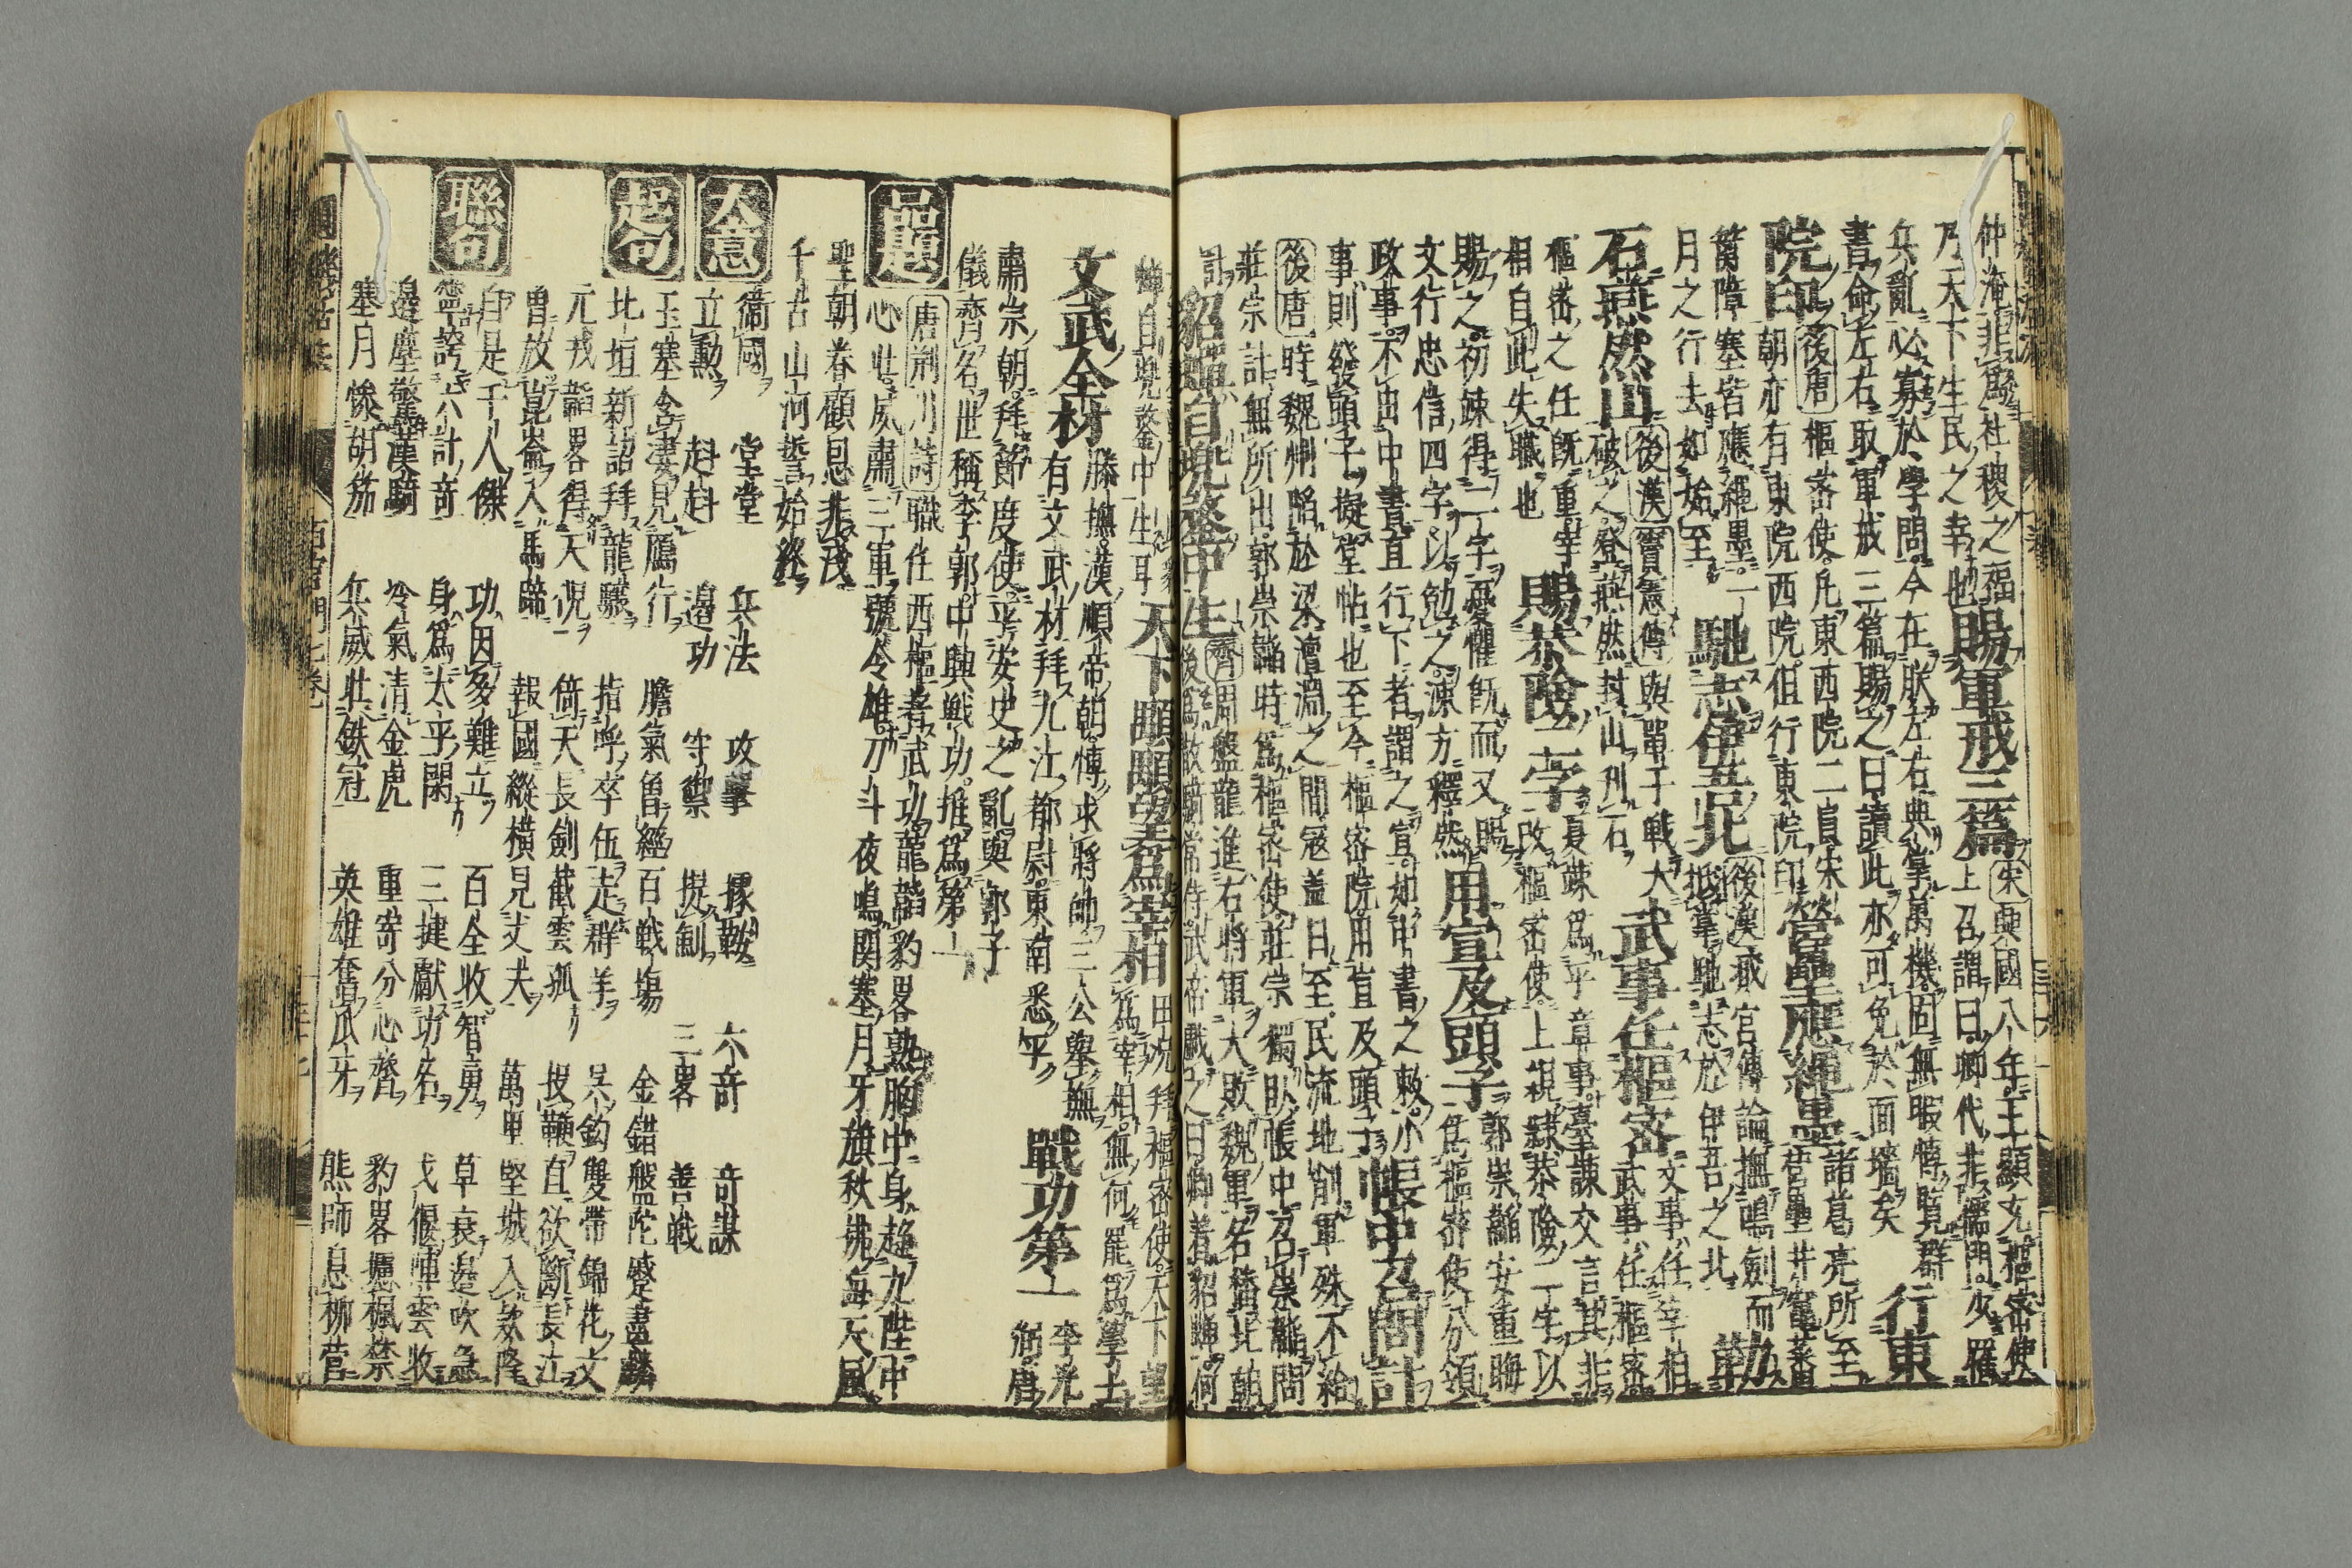 仲淹非爲社稷之福賜軍戒三篇宋興國八年王顯充樞密使
乃天下生民之幸也上召謂曰卿代非儒門少罹
兵亂必寡於學問今在朕左右典掌萬機固無暇博覽群
書命左右取軍戒三篇賜之曰讀此亦可免於面墻矣行東
院印後唐樞密使凡東西院二員宋營壘應繩墨諸葛亮所至
朝亦有東院西院但行東院印營壘井竈藩
籬障塞皆應繩墨一馳志伊吾北後漢臧宮傳論撫鳴劍而
月之行去如始至抵掌馳志於伊吾之北勒
石燕然山後漢竇憲傳與單于戰大武事任樞密文事任宰相
破之登燕然封山刊石武事任樞密
樞密之任旣重宰賜恭險二字夏竦爲平章事臺諫交言其非
相自此失職也改樞密使上親隸恭險二字以
賜之初竦得二字憂懼旣而又賜用宣及頭子郭崇韜安重誨
文行忠信四字以勉之竦方釋然爲樞密使分領
政事不由中書直行下者謂之宣如中書之敕小帳中召問計
事則發頭子擬堂帖也至今樞密院用宣及頭子
後唐時魏州陷於梁澶淵之間寇盖日至民流地削軍殊不給
莊宗計無所出郭崇韜時爲樞密使莊宗獨臥帳中召崇韜問
計貂蟬自兜鍪中生齊周盤龍進右將軍大敗魏軍名播北朝
後爲散騎常侍武帝戲之曰卿着貂蟬何
如兜鍪對曰貂
蟬自兜鍪中生耳天下顒顒望君爲宰相田況拜樞密使天下望
爲宰相無何罷爲學士
文武全材滕撫漢順帝朝博求將帥三公舉撫戰功第一李光
有文武材拜九江都尉東南悉平弼唐
肅宗朝拜節度使平安史之亂與郭子
儀齊名世稱李郭中興戰功推爲第一
品題唐荊川詩職任西樞耆武功龍韜豹畧熟胸中身趨九陛中
心壯威肅三軍號令雄刀斗夜鳴関塞月牙旗秋拂海天風
聖朝眷顧恩非淺
千古山河誓始終
大意衛國 堂堂 兵法 攻擊 據鞍 六奇 奇謀
立勳 赳赳 邊功 守禦 提劍 三畧 善戰
起句玉塞含凄見鴈行 膽氣魯經百戰塲 金錯盤陀蹙畫麟
北垣新詔拜龍驤 指呼卒伍走群羊 吳鈎雙帶錦花文
元戎韜畧得天倪 倚天長劍截雲孤 投鞭直欲斷長江
曾放崑崙入馬蹄 報國縱橫見丈夫 萬里堅城入款降
聯句自是千人傑 功因多難立 百全收智勇 草衰邊吹急
寧誇六計奇 身爲太平閑 三捷獻功名 戈偃陣雲收
邊塵驚漢騎 冷氣清金虎 重寄分心膂 豹畧攄楓禁
塞月慘胡笳 兵威壯鉄冠 英雄奮爪牙 熊師息柳營